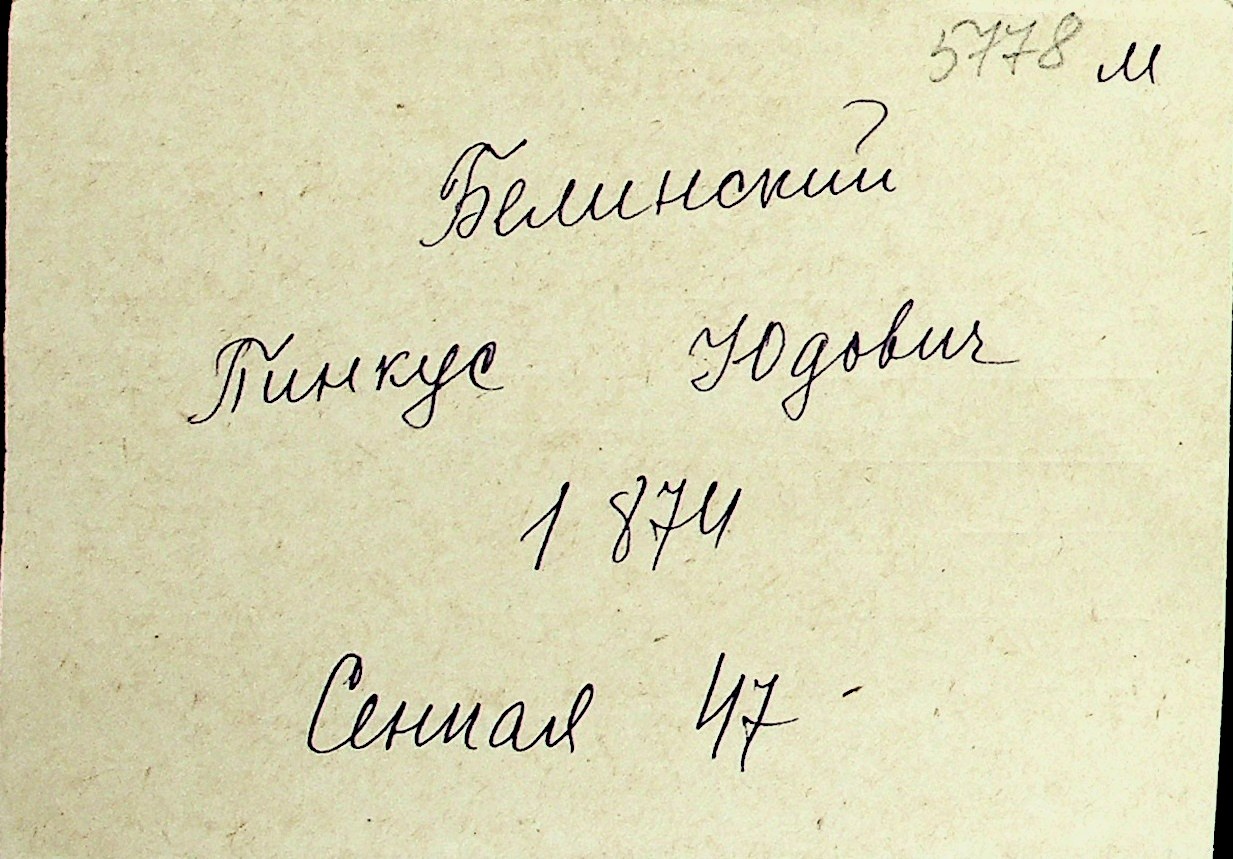 5778 м
Белинский
Пинкус Юдович
1874
Сенная 47